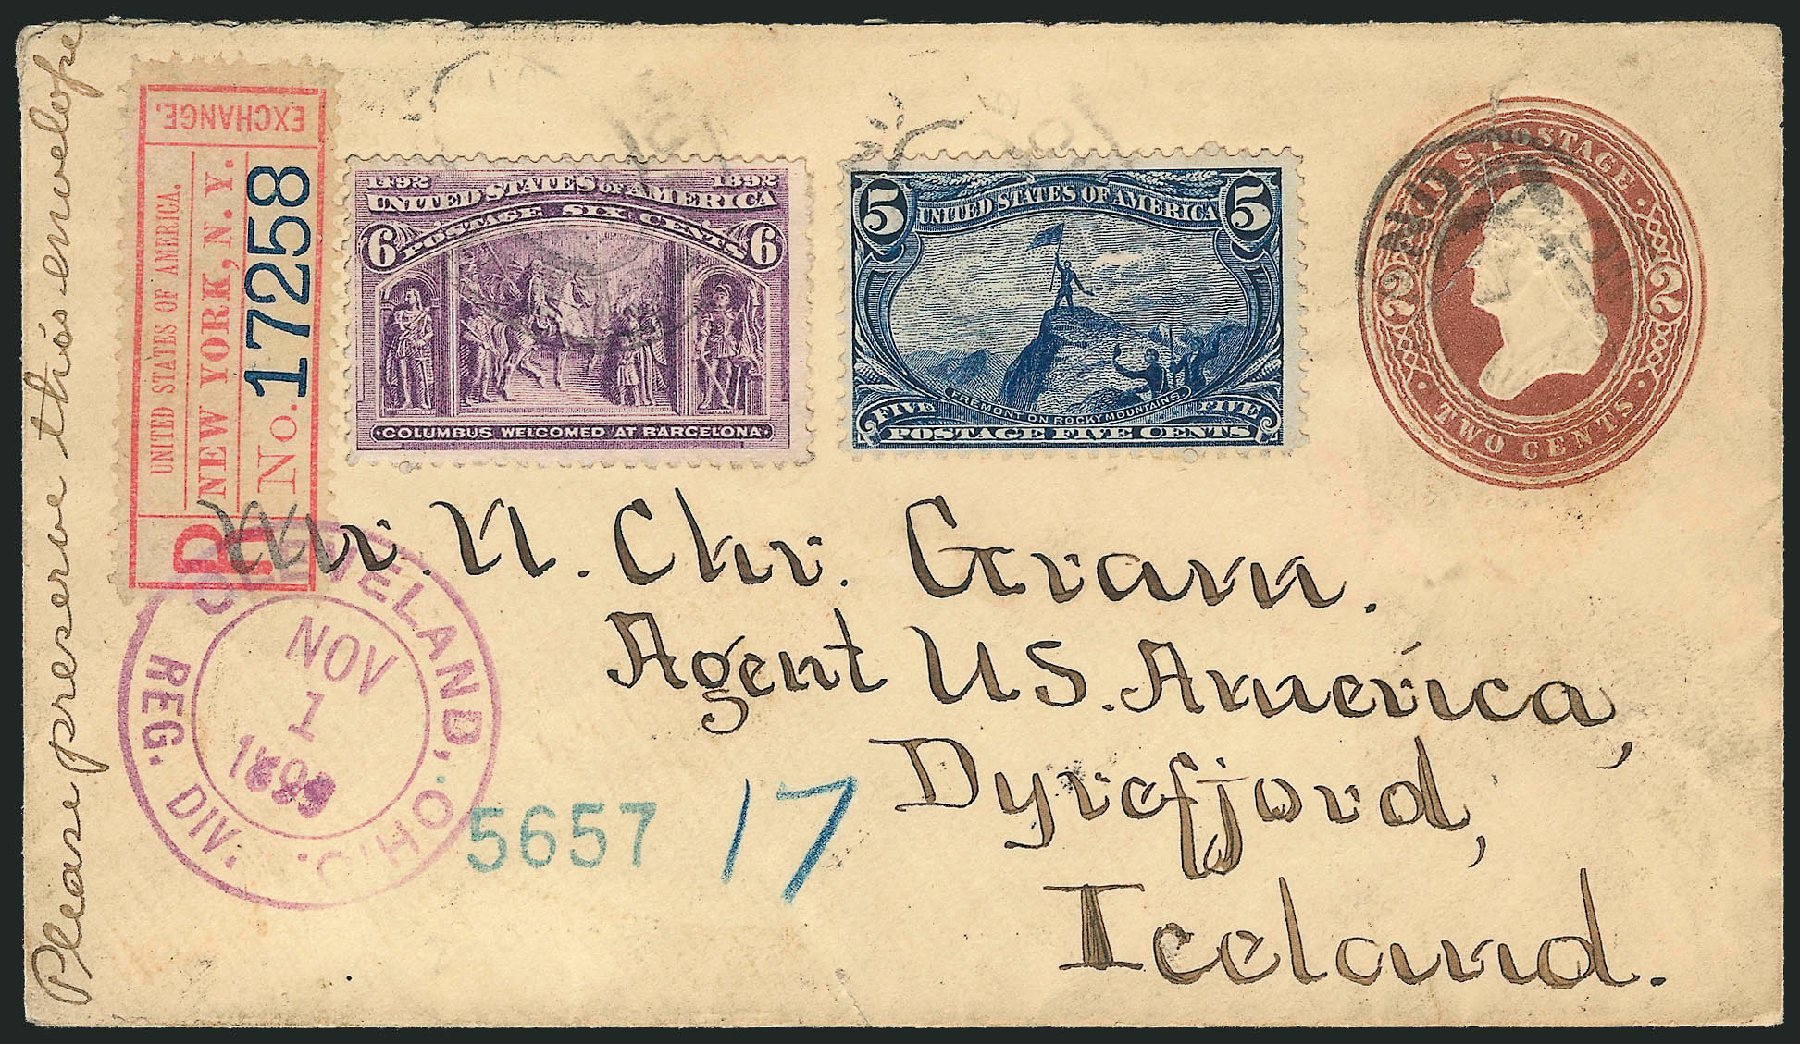 Please preserve this envelope
EXCHANGE.
UNITED STATES OF AMERICA.
NEW YORK, N.Y.
R No. 17258
1492 1892
UNITED STATES OF AMERICA
POSTAGE SIX CENTS
6 6
COLUMBUS WELCOMED AT BARCELONA
5 UNITED STATES OF AMERICA 5
FREMONT ON ROCKY MOUNTAINS
FIVE FIVE
POSTAGE FIVE CENTS
U S POSTAGE
2 2
TWO CENTS
Mr. N. Chr. Gram.
Agent US. America,
Dyrefjord,
Iceland.
CLEVELAND, OHIO.
NOV
1
REG. DIV.
5657 17